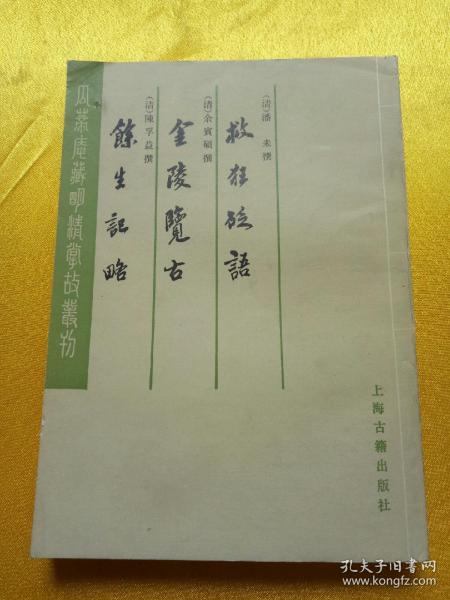 (清)潘 耒 撰
救狂砭語
(清)余賓碩撰
金陵覽古
(清)陳孚益撰
餘生記略
瓜蒂庵藏明清掌故叢刊
上海古籍出版社
孔夫子旧书网
www.kongfz.com